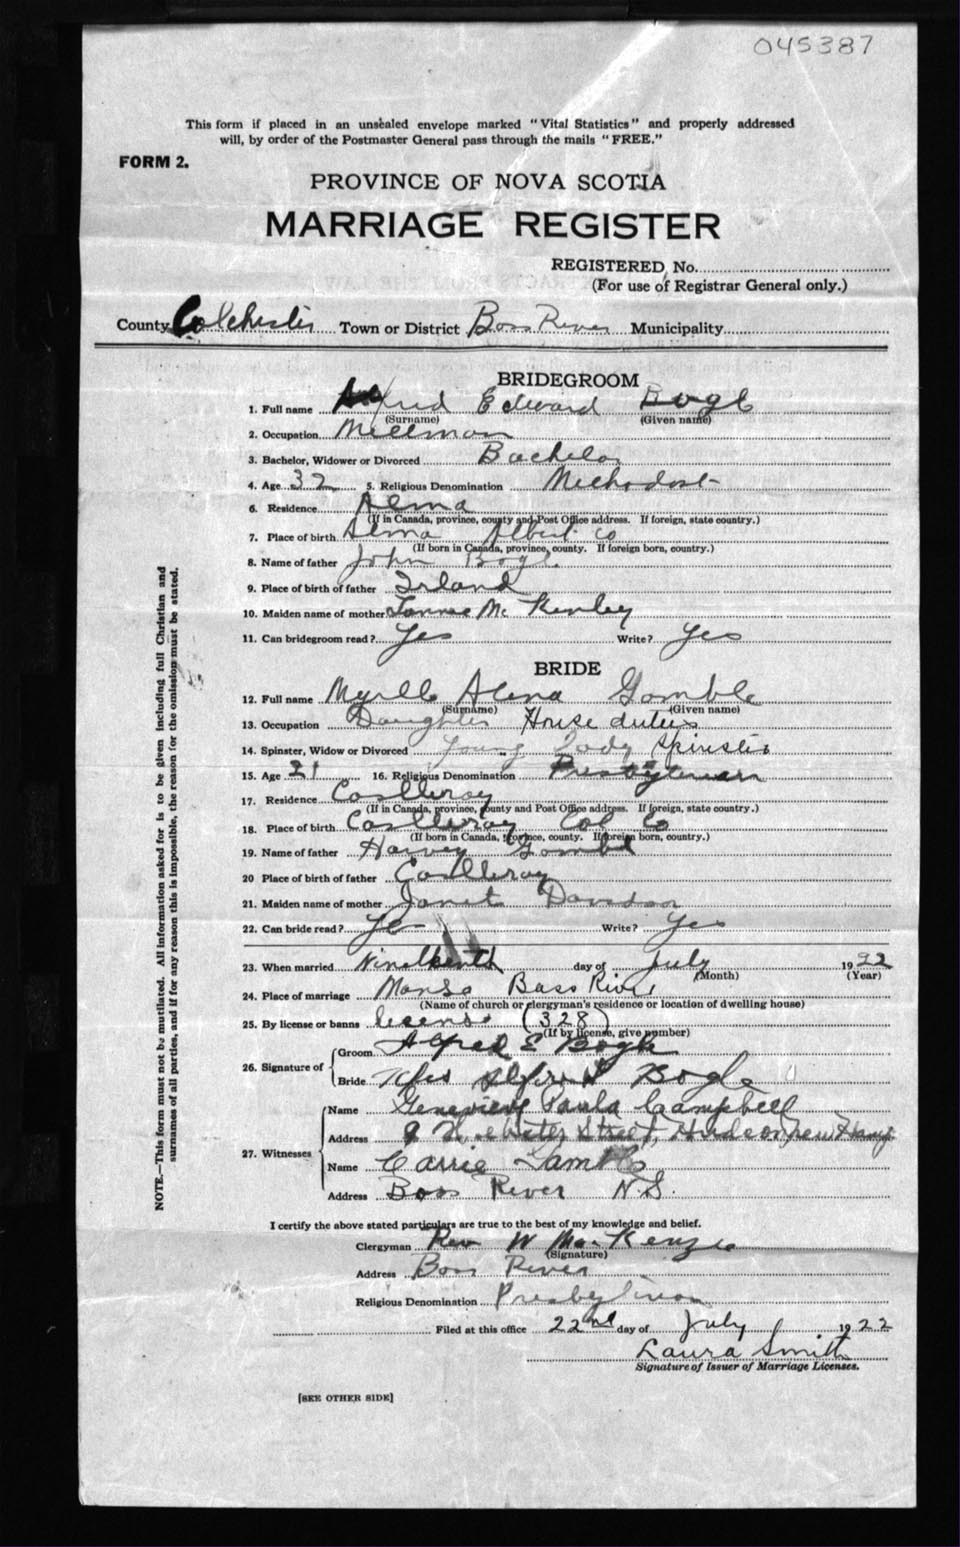 045387
This form if placed in an unsealed envelope marked "Vital Statistics" and properly addressed
will, by order of the Postmaster General pass through the mails "FREE."
FORM 2.
PROVINCE OF NOVA SCOTIA
MARRIAGE REGISTER
REGISTERED No.
(For use of Registrar General only.)
County Colchester Town or District Bass River Municipality
BRIDEGROOM
1. Full name Alfred Edward Bogle
(Surname) (Given name)
2. Occupation Millman
3. Bachelor, Widower or Divorced Bachelor
4. Age 32 5. Religious Denomination Methodist
6. Residence Alma
(If in Canada, province, county and Post Office address. If foreign, state country.)
7. Place of birth Alma Albert Co
(If born in Canada, province, county. If foreign born, country.)
8. Name of father John Bogle
9. Place of birth of father Irland
10. Maiden name of mother Mc Kinley
11. Can bridegroom read? Yes Write? Yes
BRIDE
12. Full name Myrtle Alena Gamble
(Surname) (Given name)
13. Occupation Daughter House duties
14. Spinster, Widow or Divorced Young Lady Spinster
15. Age 21 16. Religious Denomination Presbyterian
17. Residence Castlereay
(If in Canada, province, county and Post Office address. If foreign, state country.)
18. Place of birth Castlereay Col Co
(If born in Canada, province, county. If foreign born, country.)
19. Name of father Harvey Gamble
20 Place of birth of father Castlereay
21. Maiden name of mother Janet Davidson
22. Can bride read? Yes Write? Yes
23. When married Nineteenth day of July 1922
(Month) (Year)
24. Place of marriage Manse Bass River
(Name of church or clergyman's residence or location of dwelling house)
25. By license or banns license (328)
(If by license, give number)
26. Signature of
Groom Alfred E Bogle
Bride Mrs Alfred Bogle
27. Witnesses
Name Genevieve Paula Campbell
Address 9 Webster Street, Hudson, New Hamp
Name Carrie Lamb
Address Bass River N.S.
I certify the above stated particulars are true to the best of my knowledge and belief.
Clergyman Rev W MacKenzie
(Signature)
Address Bass River
Religious Denomination Presbyterian
Filed at this office 22nd day of July 1922
Laura Smith
Signature of Issuer of Marriage Licenses.
[SEE OTHER SIDE]
NOTE.—This form must not be mutilated. All information asked for is to be given including full Christian and
surnames of all parties, and if for any reason this is impossible, the reason for the omission must be stated.